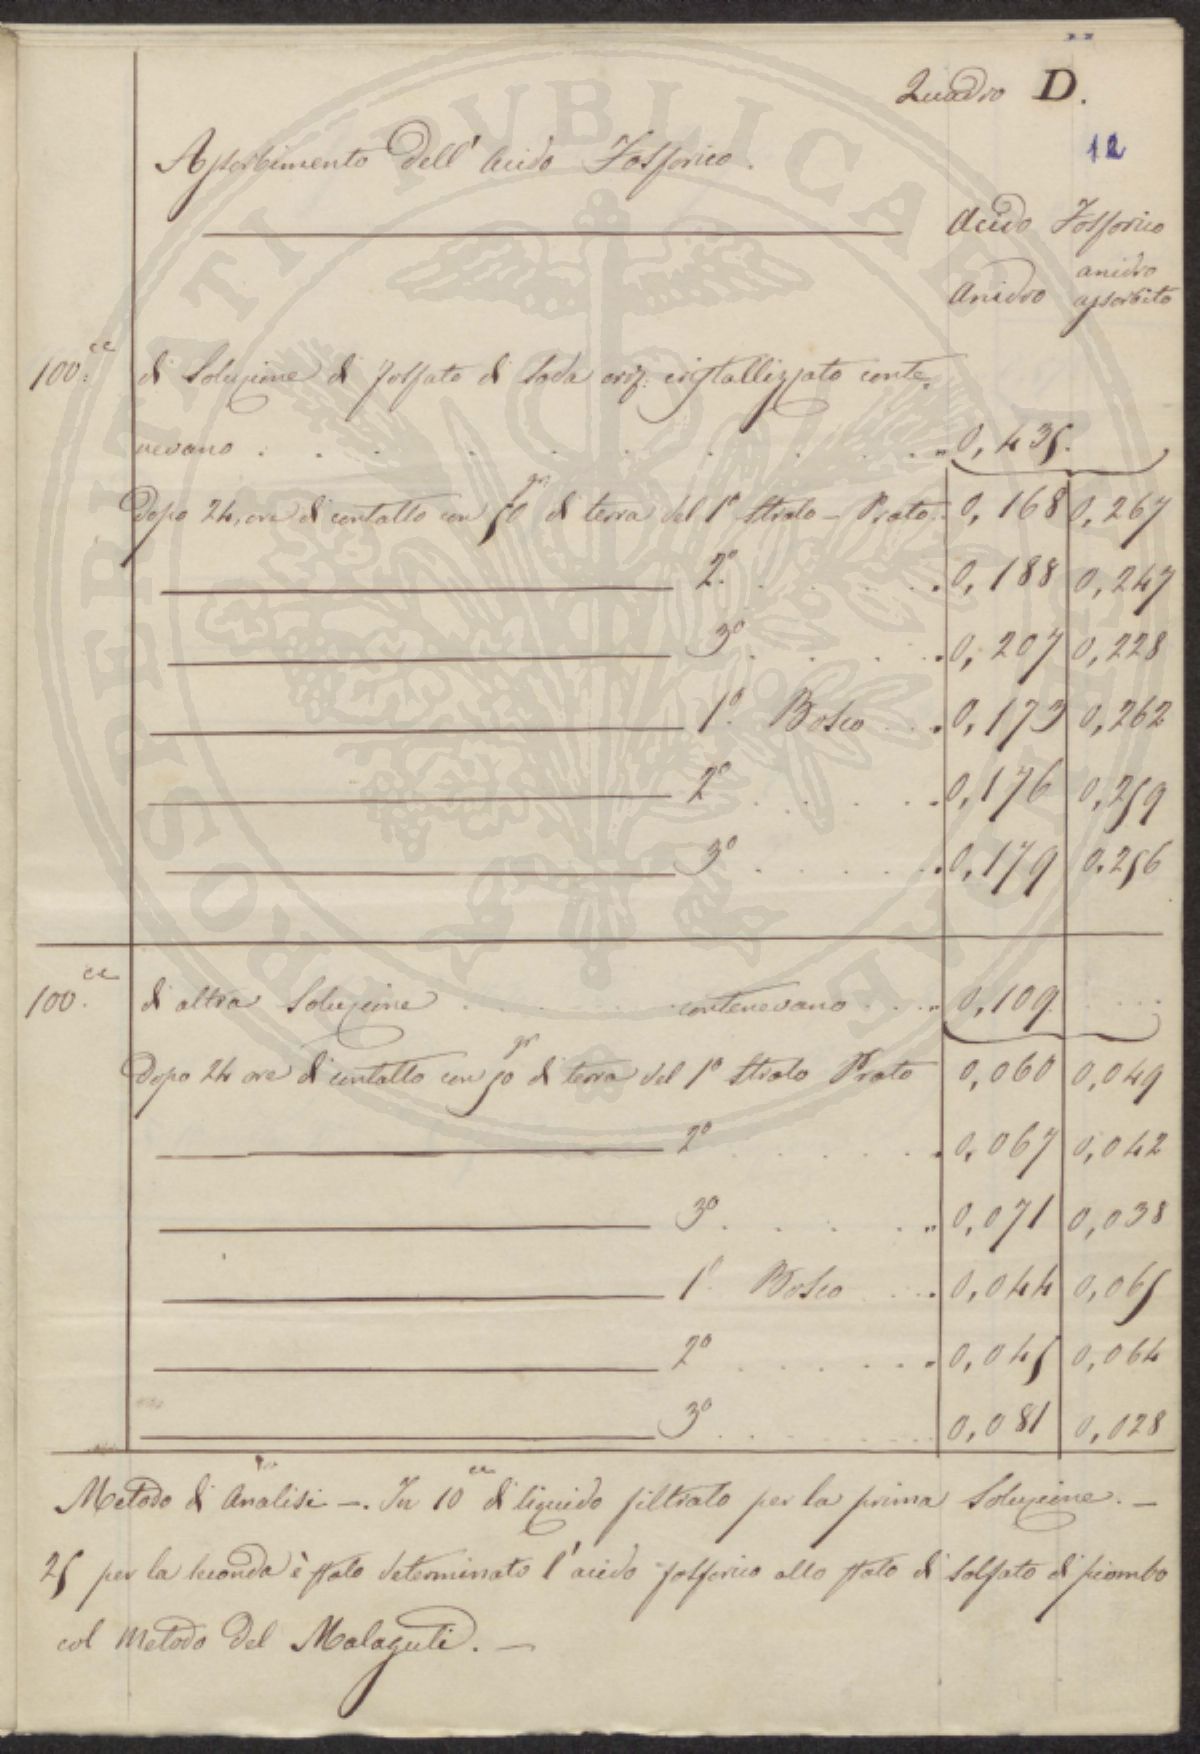 Quadro D.
12
Assorbimento dell' acido Fosforico.
Acido Fosforico
Anidro anidro assorbito
100.cc di Soluzione di fosfato di Soda cristallizzato conte,
nevano . . . . . . . . . " 0,435.
Dopo 24, ore di contatto con 50gr di terra del 1º Strato – Prato . 0,168 0,267
2º . . . . . " 0,188 0,247
3º . . . . " 0,207 0,228
1º. Bosco . . " 0,173 0,262
2º . . . . . " 0,176 0,259
3º . . . . . " 0,179 0.256
100.cc di altra Soluzione . . . . . contenevano . . . " 0,109. . . .
Dopo 24 ore di contatto con 50gr di terra del 1º Strato Prato 0,060 0,049
2º . . . . . " 0,067 0,042
3º . . . . " 0,071 0,038
1º Bosco . . . " 0,044 0,065
2º . . . . . " 0,045 0,064
3º . . . . . 0,081 0,028
Metodo di Analisi –. In 10cc di liquido filtrato per la prima Soluzione. –
25 per la seconda è stato determinato l' acido fosforico allo stato di solfato di piombo
col metodo del Malaguti. –